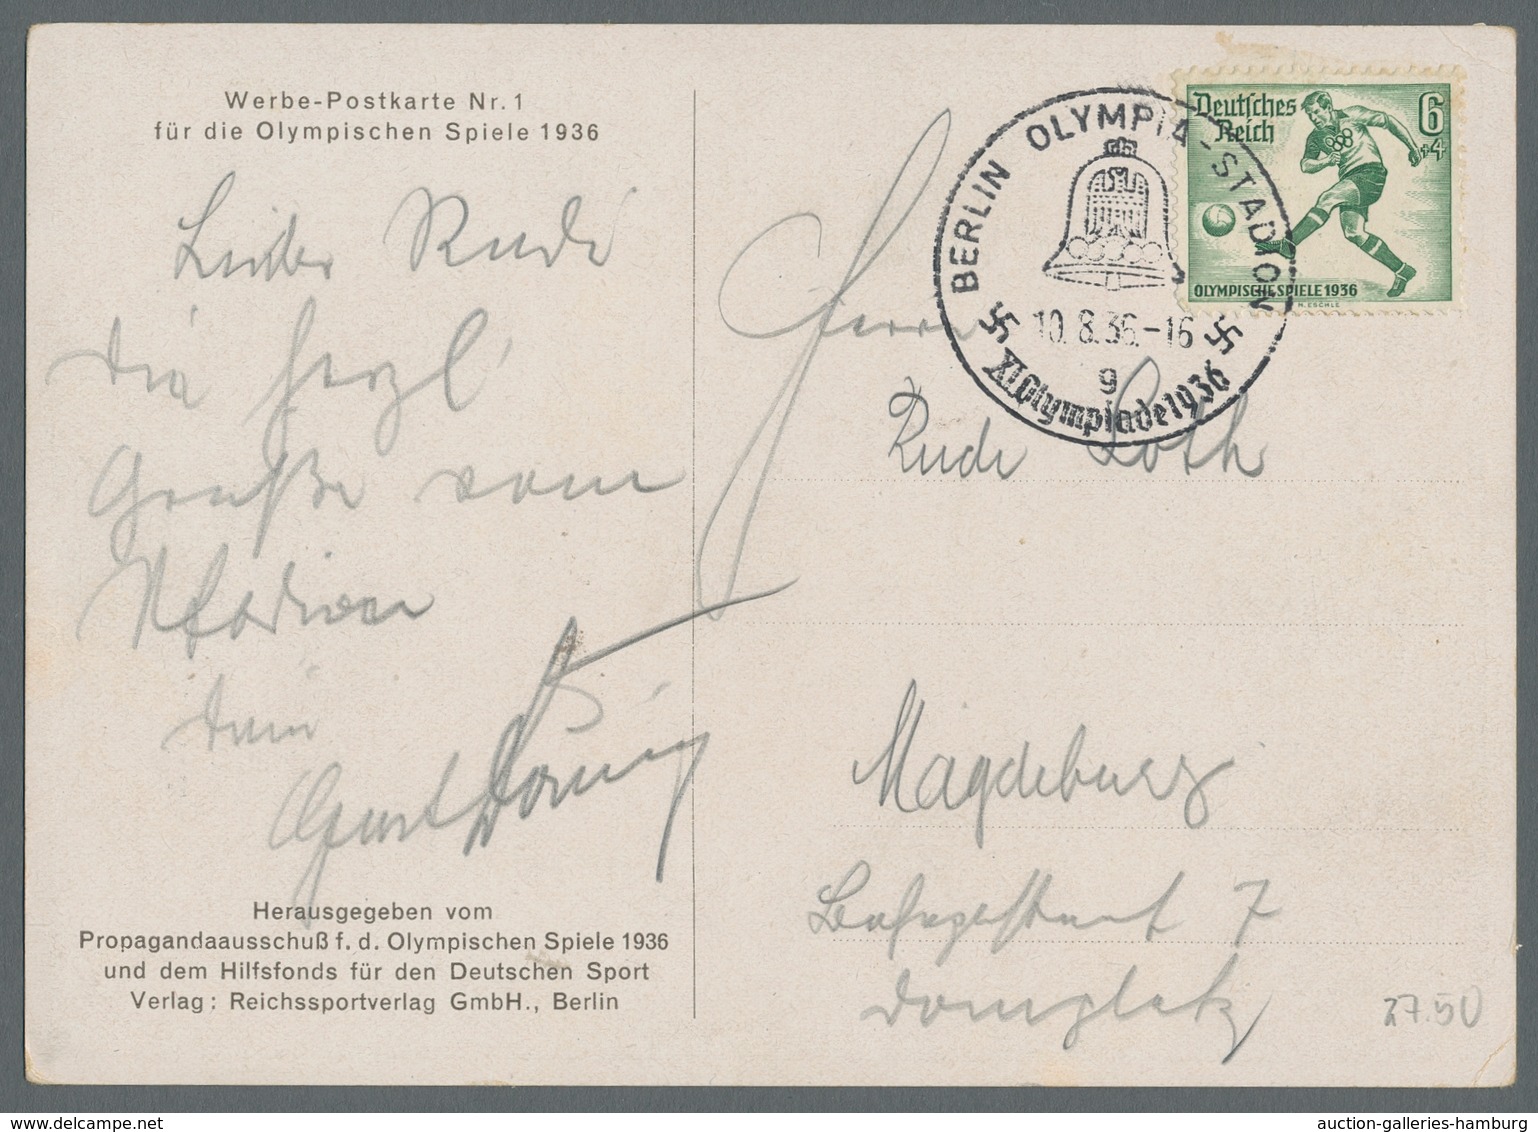 Werbe-Postkarte Nr. 1
für die Olympischen Spiele 1936
Lieber Rudi
die herzl
Grüße vom
Stadion
dein
BERLIN OLYMPIA-STADION
10.8.36.-16
g
XI. Olympiade 1936
Deutsches
Reich
6
+4
OLYMPISCHE SPIELE 1936
H. ESCHLE
Herrn
Rudi Loth
Magdeburg
7
Domplatz
27.50
Herausgegeben vom
Propagandaausschuß f. d. Olympischen Spiele 1936
und dem Hilfsfonds für den Deutschen Sport
Verlag: Reichssportverlag GmbH., Berlin
auction-galleries-hamburg